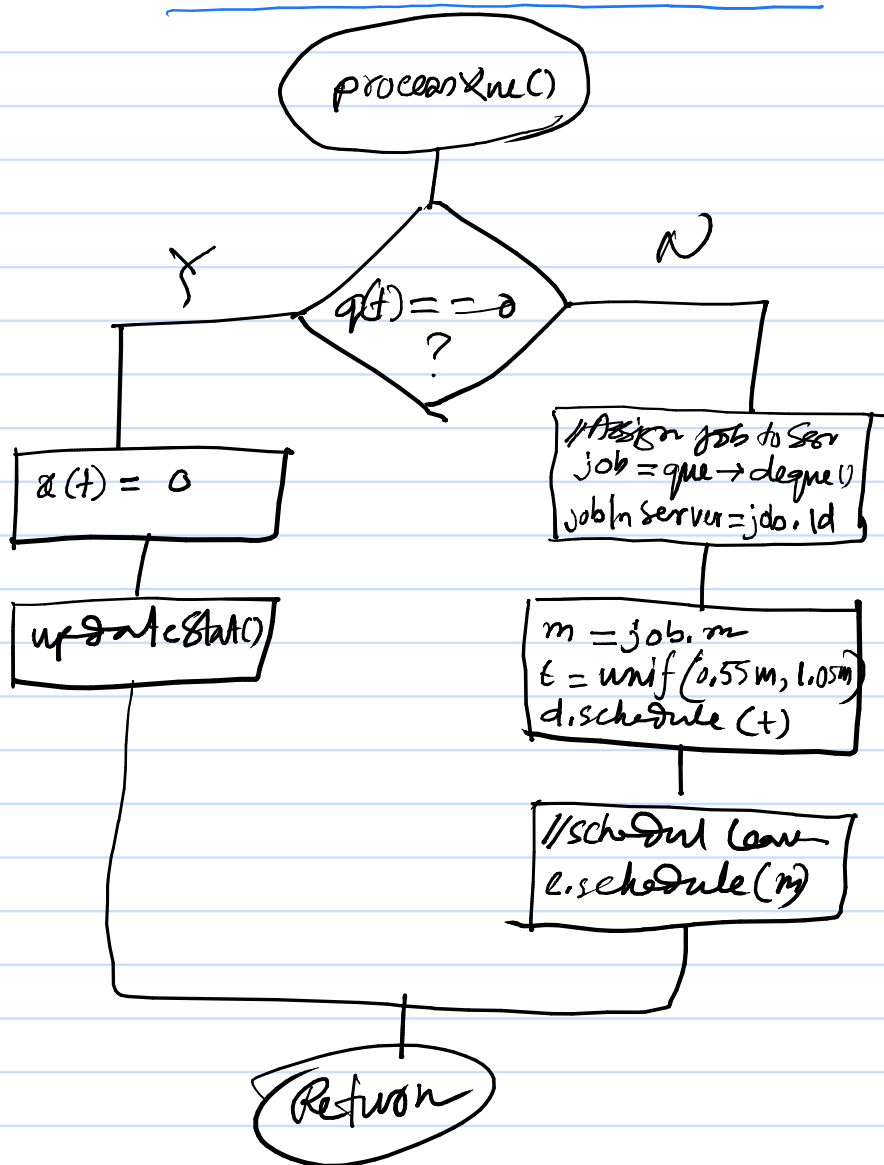 processQue()
q(t) == 0
?
Y
N
x(t) = 0
updateStat()
//Assign job to Serv
job = que → deque()
jobInServer = job.Id
m = job.m
t = unif(0.55m, 1.05m)
d.schedule(t)
//schedul leave
l.schedule(m)
Return